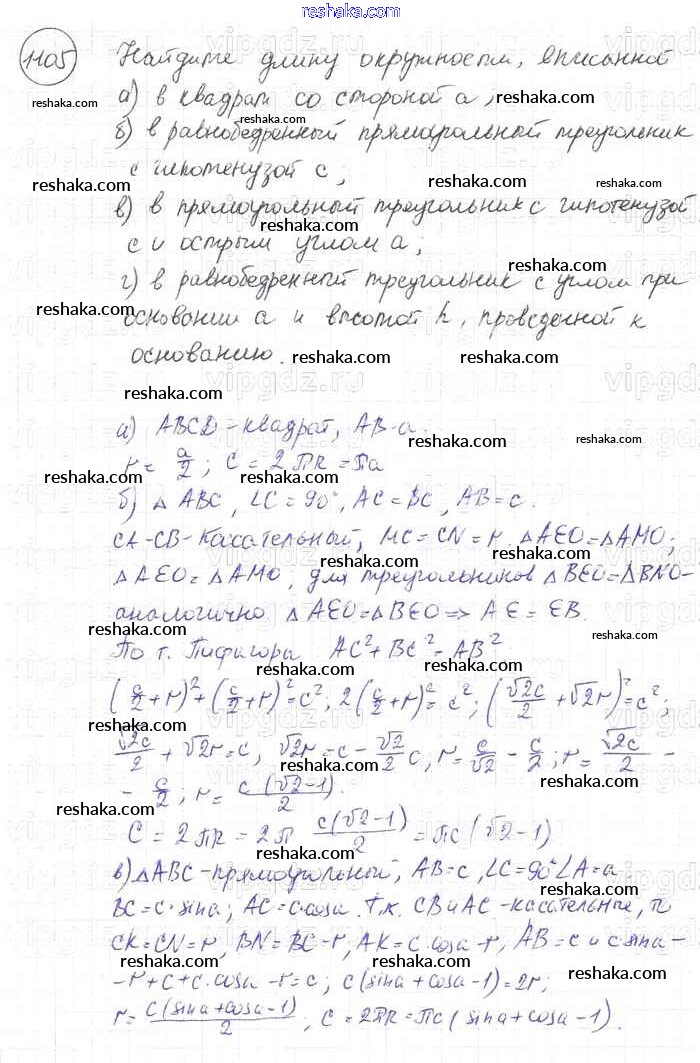 reshaka.com
1105 Найдите длину окружности, вписанной
а) в квадрат со стороной a;
б) в равнобедренный прямоугольный треугольник
с гипотенузой c;
в) в прямоугольный треугольник с гипотенузой
c и острым углом a;
г) в равнобедренный треугольник с углом при
основании a и высотой h, проведенной к
основанию.
а) ABCD - квадрат, AB - a.
r = a/2; C = 2ПR = Па
б) △ ABC, ∠C = 90°, AC = BC, AB = c.
CA - CB - касательный, MC = CN = r. △AEO = △AMO;
△AEO = △AMO; для треугольников △BEO = △BNO -
аналогично. △AEO = △BEO => AE = EB.
По т. Пифагора AC² + BC² = AB²
(c/2 + r)² + (c/2 + r)² = c²; 2(c/2 + r)² = c²; (√2c/2 + √2r)² = c²;
√2c/2 + √2r = c, √2r = c - √2/2 c; r = c/√2 - c/2; r = √2c/2 -
- c/2; r = c(√2-1)/2.
C = 2ПR = 2П c(√2-1)/2 = Пc(√2-1)
в) △ABC - прямоугольный, AB = c, ∠C = 90° ∠A = a
BC = c·sina; AC = c·cosa. т.к. CB и AC - касательные, то
CK = CN = r, BN = BC - r, AK = c·cosa - r, AB = c и c·sina -
- r + c + c·cosa - r = c; c(sina + cosa - 1) = 2r;
r = c(sina + cosa - 1)/2; C = 2ПR = Пc(sina + cosa - 1).